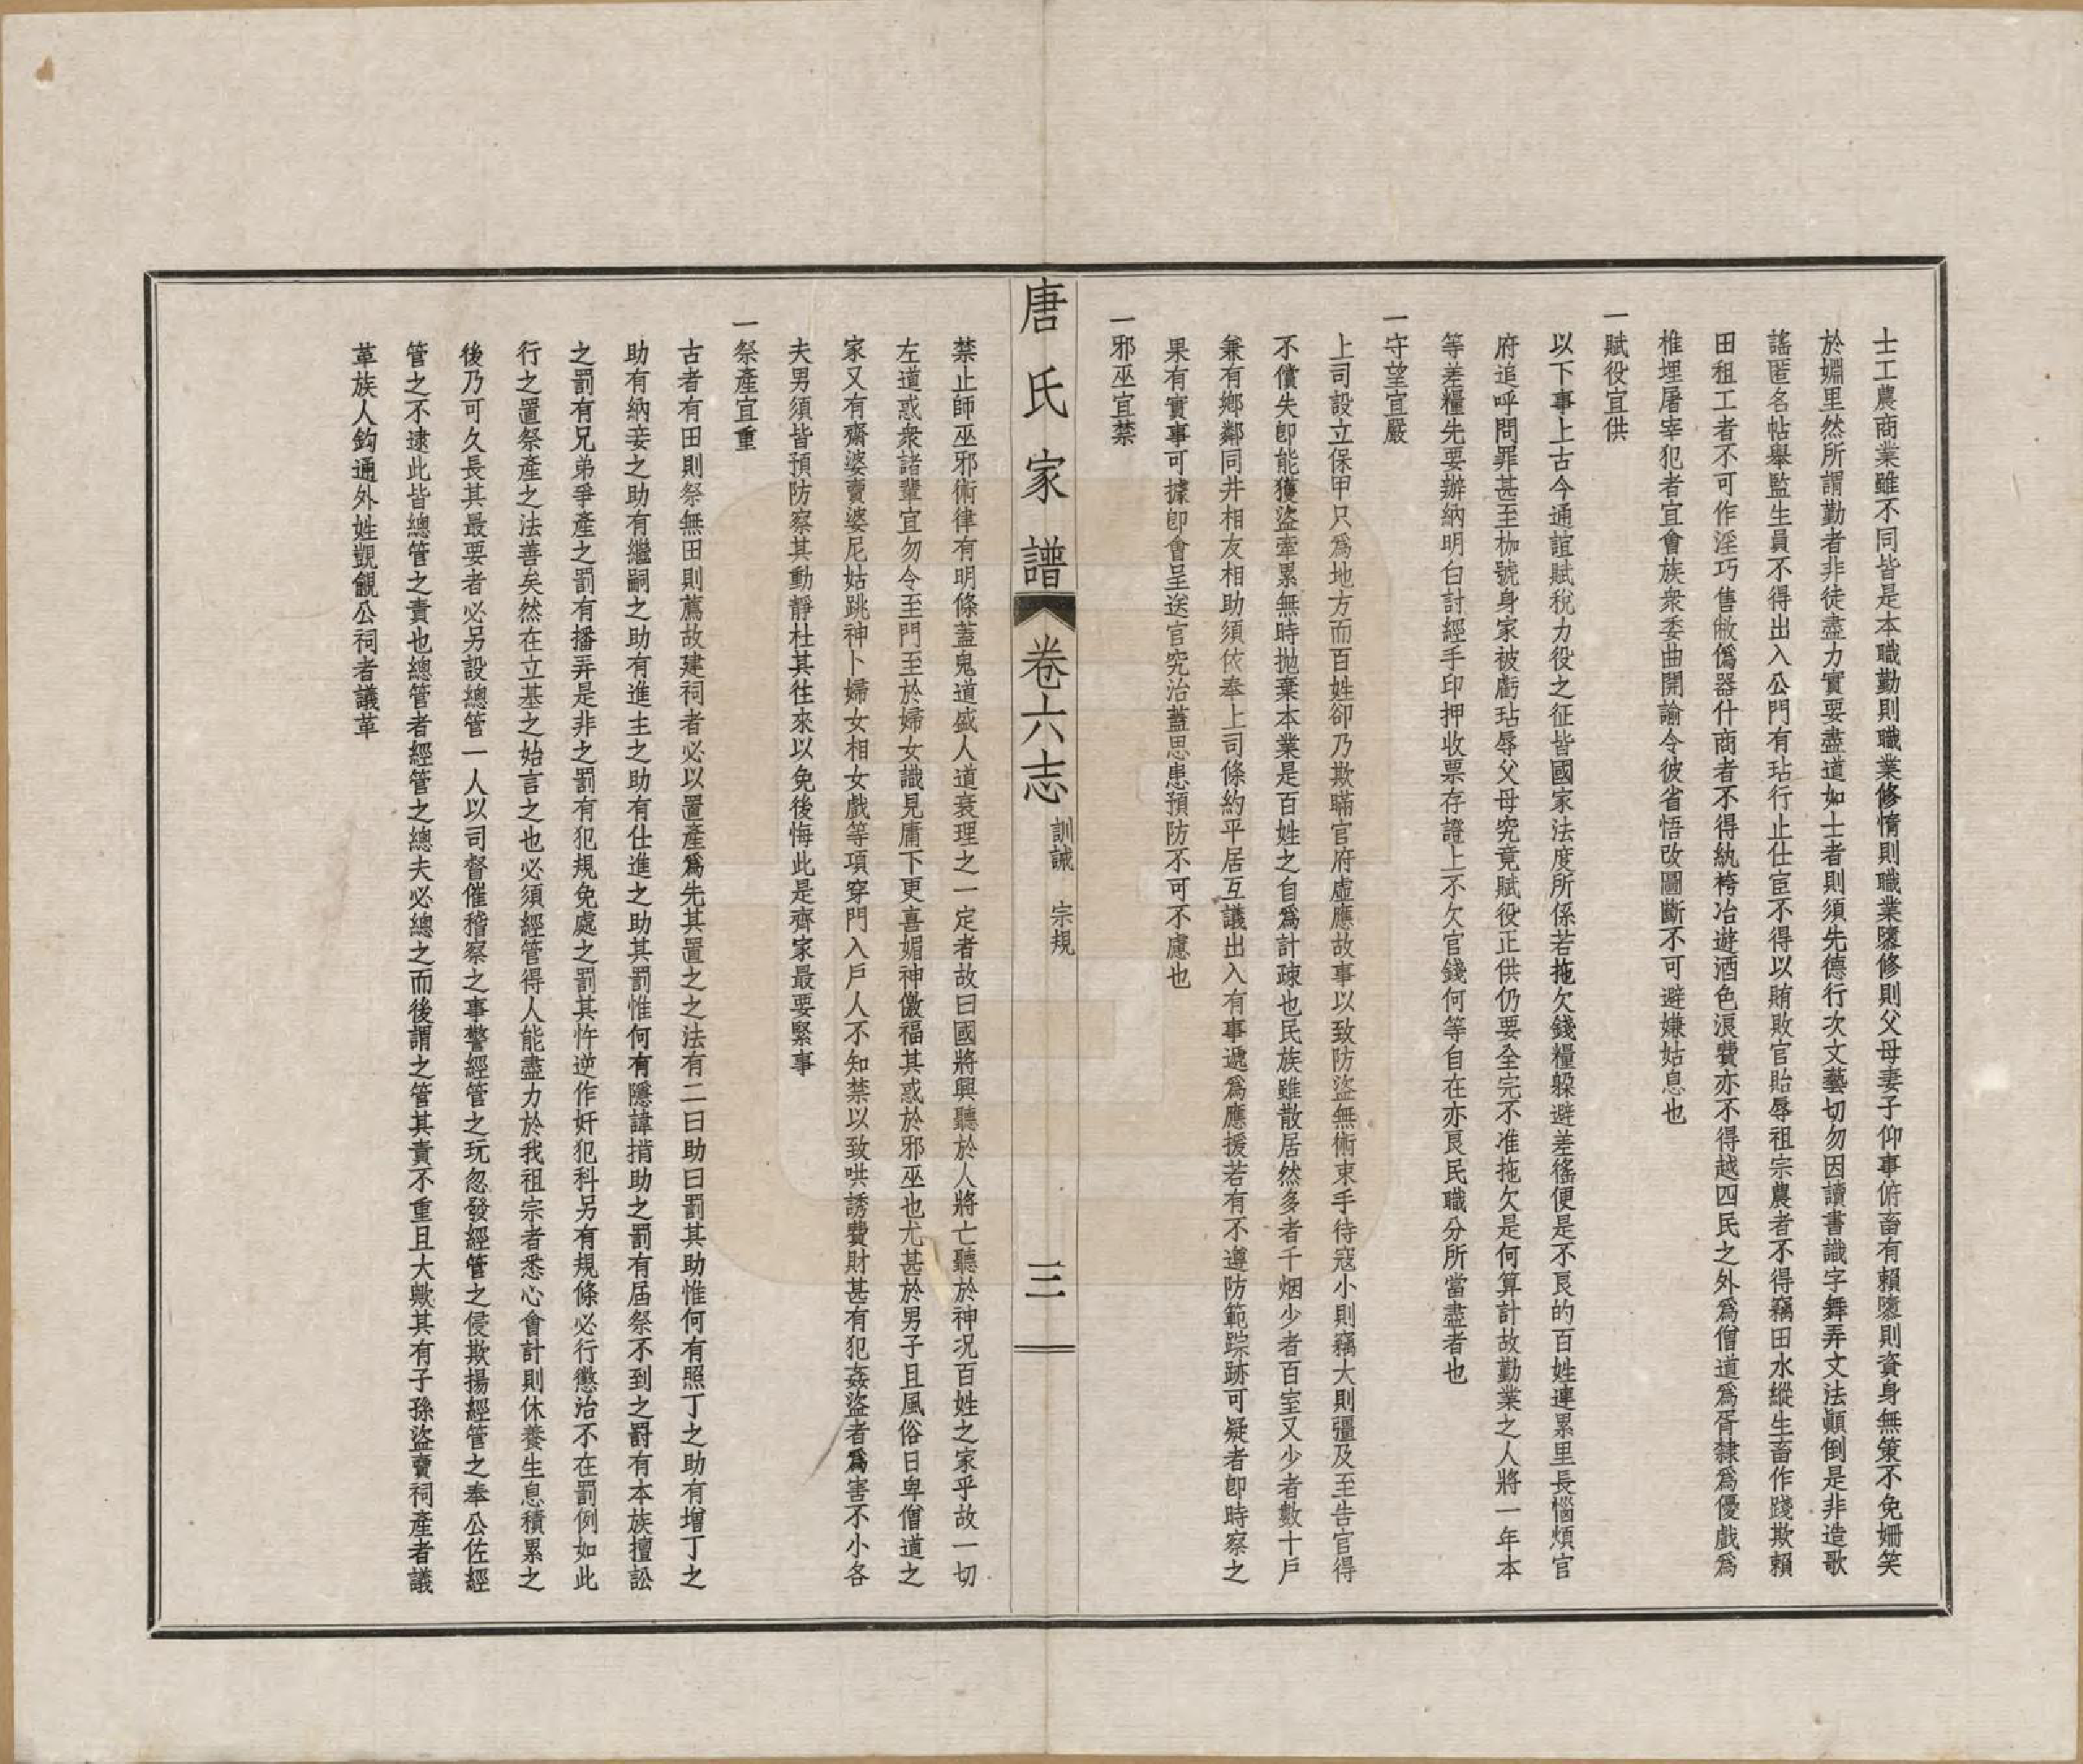 士工農商業雖不同皆是本職勤則職業修惰則職業隳修則父母妻子仰事俯畜有賴隳則資身無策不免姍笑
於婣里然所謂勤者非徒盡力實要盡道如士者則須先德行次文藝切勿因讀書識字舞弄文法顛倒是非造歌
謠匿名帖舉監生員不得出入公門有玷行止仕宦不得以賄敗官貽辱祖宗農者不得竊田水縱牲畜作踐欺賴
田租工者不可作淫巧售敝僞器什商者不得紈袴冶遊酒色浪費亦不得越四民之外爲僧道爲胥隸爲優戲爲
椎埋屠宰犯者宜會族衆委曲開諭令彼省悟改圖斷不可避嫌姑息也
一賦役宜供
以下事上古今通誼賦稅力役之征皆國家法度所係若拖欠錢糧躱避差徭便是不良的百姓連累里長惱煩官
府追呼問罪甚至枷號身家被虧玷辱父母究竟賦役正供仍要全完不准拖欠是何算計故勤業之人將一年本
等差糧先要辦納明白討經手印押收票存證上不欠官錢何等自在亦良民職分所當盡者也
一守望宜嚴
上司設立保甲只爲地方而百姓卻乃欺瞞官府虛應故事以致防盜無術束手待寇小則竊大則彊及至告官得
不償失卽能獲盜牽累無時拋棄本業是百姓之自爲計疎也民族雖散居然多者千烟少者百室又少者數十戶
兼有鄉鄰同井相友相助須依奉上司條約平居互議出入有事遞爲應援若有不遵防範踪跡可疑者卽時察之
果有實事可據卽會呈送官究治蓋思患預防不可不慮也
一邪巫宜禁
唐氏家譜 卷六志 訓誡 宗規 三
禁止師巫邪術律有明條蓋鬼道盛人道衰理之一定者故曰國將興聽於人將亡聽於神况百姓之家乎故一切
左道惑衆諸輩宜勿令至門至於婦女識見庸下更喜媚神徼福其惑於邪巫也尤甚於男子且風俗日卑僧道之
家又有齋婆賣婆尼姑跳神卜婦女相女戲等項穿門入戶人不知禁以致哄誘費財甚有犯姦盜者爲害不小各
夫男須皆預防察其動靜杜其往來以免後悔此是齊家最要緊事
一祭產宜重
古者有田則祭無田則薦故建祠者必以置產爲先其置之之法有二曰助曰罰其助惟何有照丁之助有增丁之
助有納妾之助有繼嗣之助有進主之助有仕進之助其罰惟何有隱諱掯助之罰有屆祭不到之罸有本族擅訟
之罰有兄弟爭產之罰有播弄是非之罰有犯規免處之罰其忤逆作奸犯科另有規條必行懲治不在罰例如此
行之置祭產之法善矣然在立基之始言之也必須經管得人能盡力於我祖宗者悉心會計則休養生息積累之
後乃可久長其最要者必另設總管一人以司督催稽察之事警經管之玩忽發經管之侵欺揚經管之奉公佐經
管之不逮此皆總管之責也總管者經管之總夫必總之而後謂之管其責不重且大歟其有子孫盜賣祠產者議
革族人鈎通外姓覬覦公祠者議革